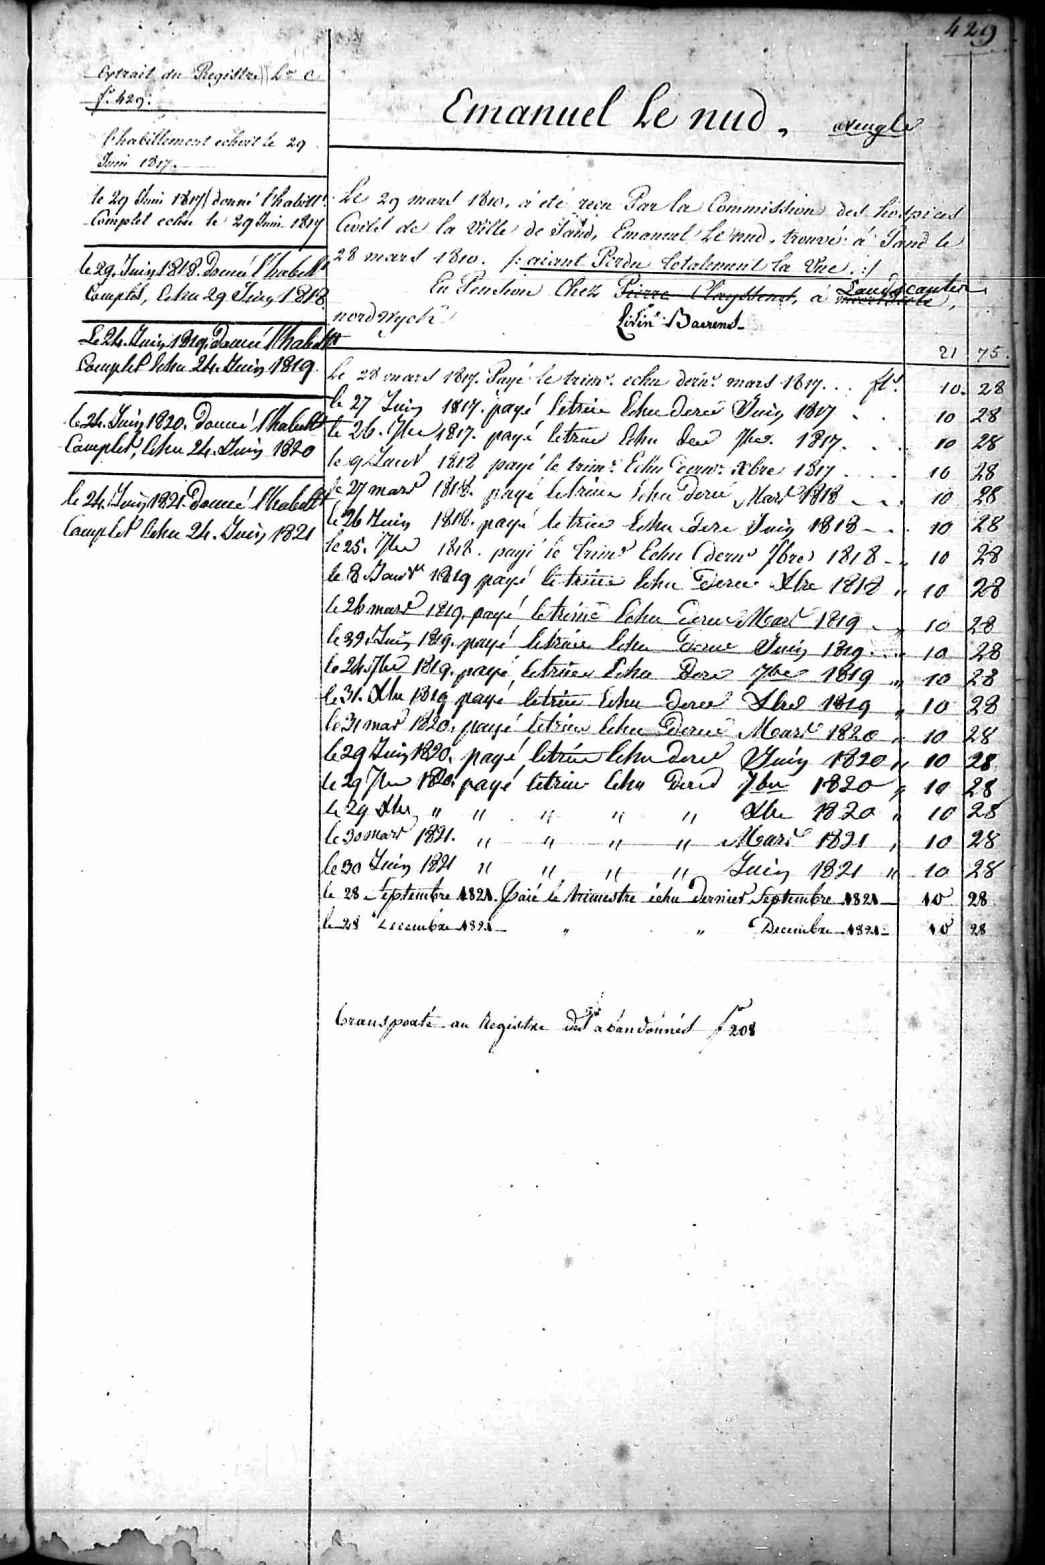 429
Extrait du Registre L.re C
f.o 429.
l'habillement echoit le 29
Juin 1817.
le 29 Juin 1817 donné l'habillt.
Complet echu le 29 Juin 1817
le 29 Juin 1818. Donné l'habillt
Complet, Echu 29 Juin 1818
Le 24. Juin 1819. Donné l'habillt
Complet Echu 24. Juin 1819.
le 24. Juin 1820. Donné l'habillt
Complet, Echu 24. Juin 1820
le 24. Juin 1821. Donné l'habillt
Complet Echu 24. Juin 1821
Emanuel Le nud. aveugle
Le 29 mars 1810. a été recu Par la Commission des hospices
Civils de la Ville de Gand, Emanuel Le nud, trouvé à Gand le
28 mars 1810. /: aiant Perdu totalement la Vue :/
En Pension Chez Pierre à Landscauter
nord Wyck Livin Baerens
21 75.
Le 28 mars 1817. Payé le trimr. echu dernr. mars 1817. . . fls. 10. 28
le 27 Juin 1817. payé letrim Echu derè Juin 1817 . . 10 28
le 26. 7bre 1817. payé letrim Echu der 7bre. 1817. . . 10 28
le 9 Janvr 1818 payé le trimr. Echu dernr. Xbre 1817 . . . 10 28
le 27 mars 1818. payé letrim Echu derè Mars 1818 . . 10 28
le 26 Juin 1818. payé letrim Echu dere Juin 1818 - . 10 28
le 25. 7bre 1818. payé le trimr Echu dernr 7bre 1818 - 10 28
le 8 Janvr 1819 payé le trim Echu Derè Xbre 1818 " 10 28
le 26 mars 1819. payé letrim Echu derè Mars 1819 - " 10 28
le 29. Juin 1819. payé letrim Echu Derè Juin 1819 . . 10 28
le 24 7bre 1819. payé letrim Echu Dere 7bre 1819 " 10 28
le 31. Xbre 1819 payé letrim Echu derè Xbre 1819 " 10 28
le 31 mars 1820. payé letrim Echu Derè Mars 1820 " 10 28
le 29 Juin 1820. payé letrim Echu derè Juin 1820 " 10 28
le 29 7bre 1820. payé letrim Echu Derè 7bre 1820 " 10 28
le 29 Xbre " " " " " Xbre 1820 " 10 28
le 30 mars 1821. " " " " Mars 1821 " 10 28
le 30 Juin 1821 " " " " Juin 1821 " 10 28
le 28 Septembre 1821. Paié le trimestre échu dernier Septembre 1821 - 10 28
le 28 Decembre 1821 - " " Decembre 1821 - 10 28
transporté au Registre des abandonnés fo 208